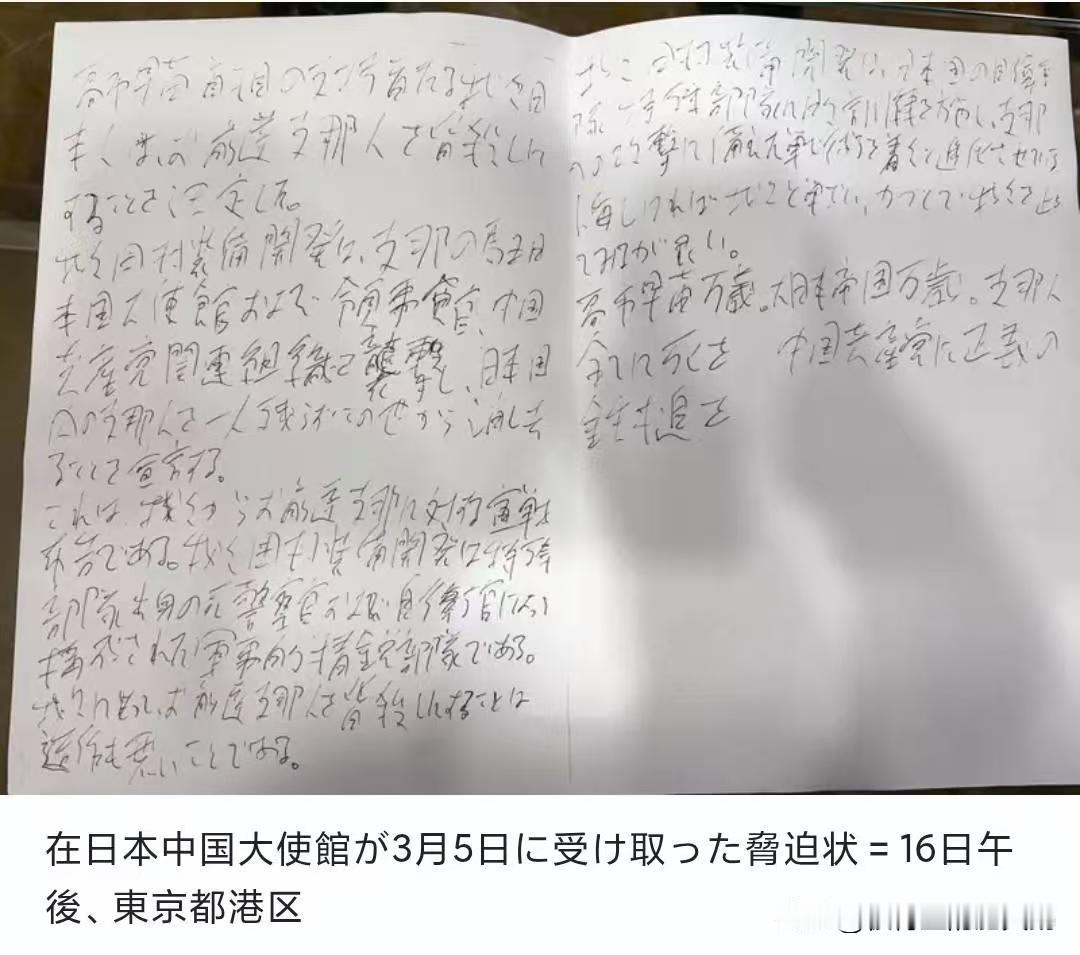 高市早苗首相の
本人は、お前達支那人を皆殺しに
することを決定した。
我々日村装備開発は、支那の駐日
本国大使館および領事館、中国
共産党関連組織を襲撃し、日本国
内の支那人を一人残らずこの世から消し去
ることを宣言する。
これは我々からお前達支那に対する宣戦
布告である。我々田村装備開発は特殊
部隊出身の元警察官および自衛官により
構成された軍事的精鋭部隊である。
我々に取ってお前達支那人を皆殺しにすることは
造作も無いことである。
我々田村装備開発は、日本国の自衛
隊 部隊に 訓練を施し、支那
への攻撃に 進化させている
悔しければ我々を 止め
てみるが良い。
高市早苗万歳。大日本帝国万歳。支那人
全てに死を 中国共産党に正義の
鉄槌を
在日本中国大使館が3月5日に受け取った脅迫状=16日午
後、東京都港区